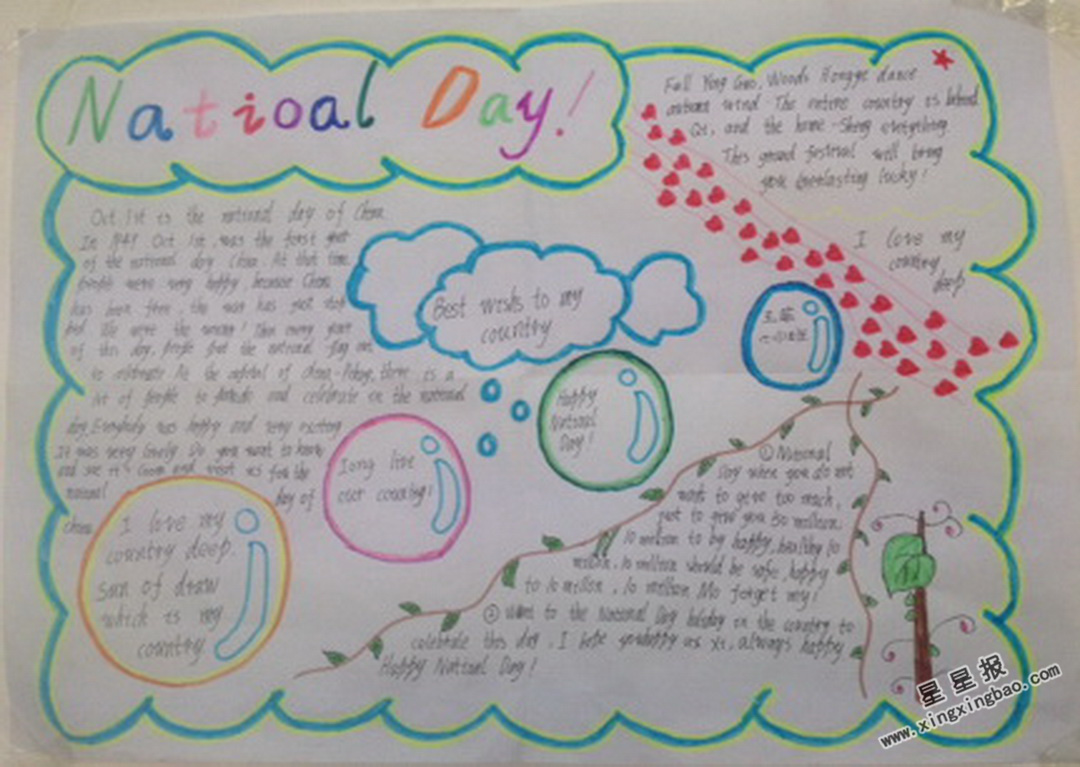 Natioal Day!
Fall Yong Guo, Woods Hongye dance
autumn wind. The entire country is behind
Qi, and the home-Sheng everything.
This grand festival will bring
you everlasting lucky!
I love my
country
deep
Oct 1st is the national day of China
In 1949 Oct 1st was the first year
of the national day China. At that time
people were very happy, because China
has been free, the war has just stop
We were the winner! Then every year
of this day, people put the national flag out
to celebrate. At the capital of China-Peking, there is a
lot of people to and celebrate in the national
day. Everybody was happy and very exciting
It was very lovely. Do you want to know
and see it? Come and visit us for the
national day of
china
Best wishs to my
country
Happy
National
Day!
Long live
our country!
I love my
country deep.
Sun of draw
which is my
country
① National
Day when you do not
want to give too much,
just to give you 50 million.
10 million to by happy, healthy 10
million, 10 million should be safe, happy
to 10 million, 10 million No forget my!
② Want to the National Day holiday in the country to
celebrate this day, I hope you happy as xi, always happy
Happy National Day!
星星报
www.xingxingbao.com